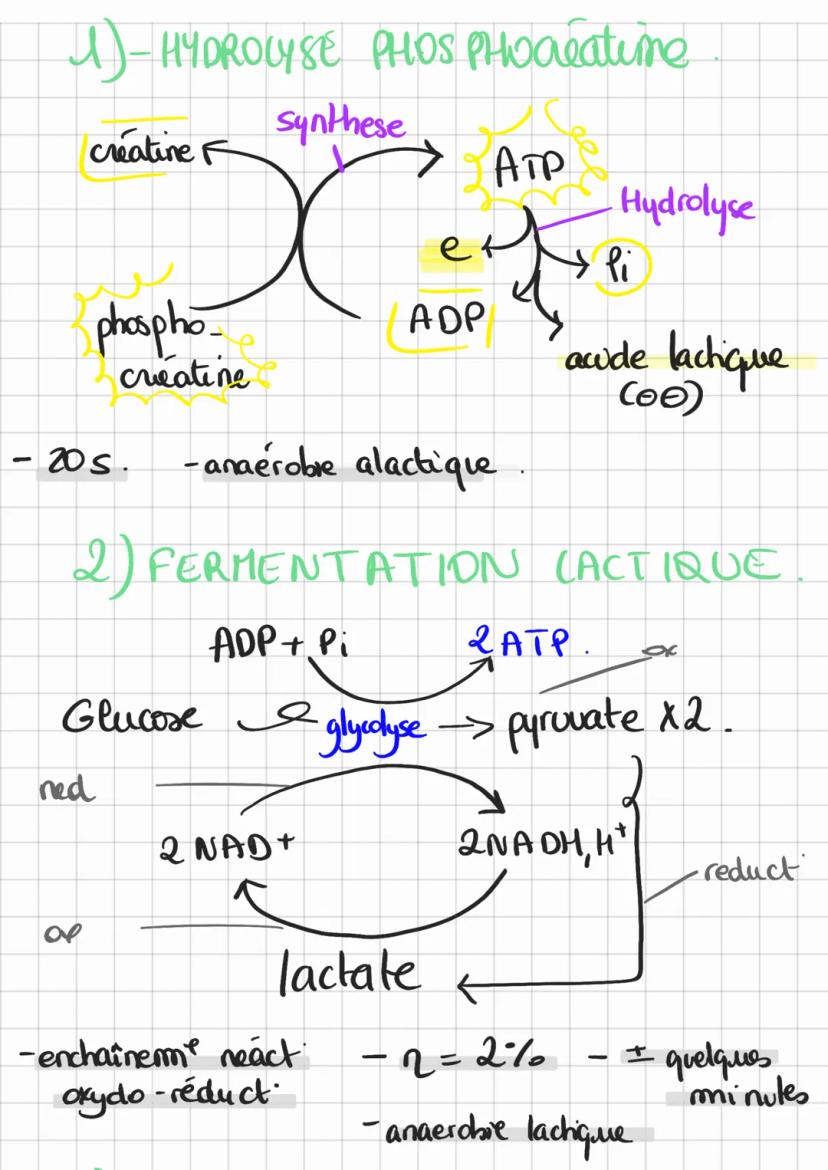 1)- HYDROLYSE PHOSPHOCRÉATINE.
synthese
créatine
ATP
Hydrolyse
e
Pi
phospho-
créatine
ADP
acide lactique
(⊖⊖)
- 20s. - anaérobie alactique.
2) FERMENTATION LACTIQUE.
ADP + Pi 2 ATP.
ox
Glucose glycolyse → pyruvate X2.
red
2 NAD+ 2NADH, H+
reduct°
ox
lactate
- enchaînemt réact° - η = 2% - ± quelques
oxydo-réduct° minutes
- anaerobie lactique